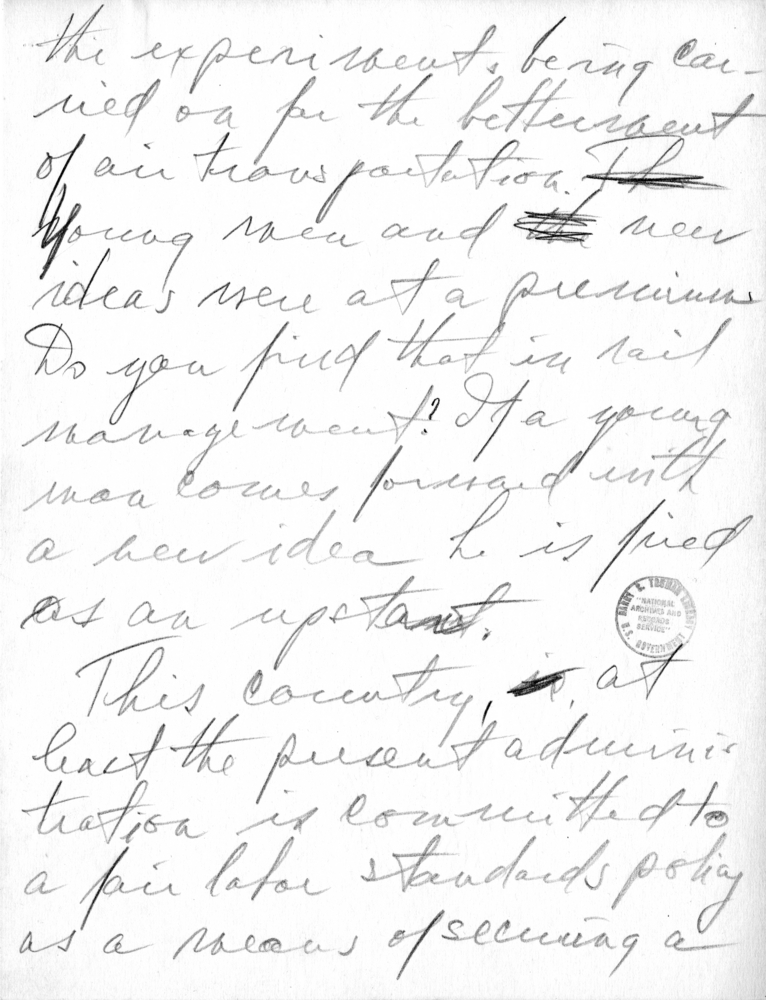 the experiments being car-
ried on for the betterment
of air transportation. The
Young men and the new
ideas were at a premium
Do you find that in rail
management? If a young
man comes forward with
a new idea he is fired
as an upstart.
HARRY S. TRUMAN LIBRARY
"NATIONAL
ARCHIVES AND
RECORDS
SERVICE"
U.S. GOVERNMENT
This country, is, at
least the present adminis-
tration is committed to
a fair labor standards policy
as a means of securing a